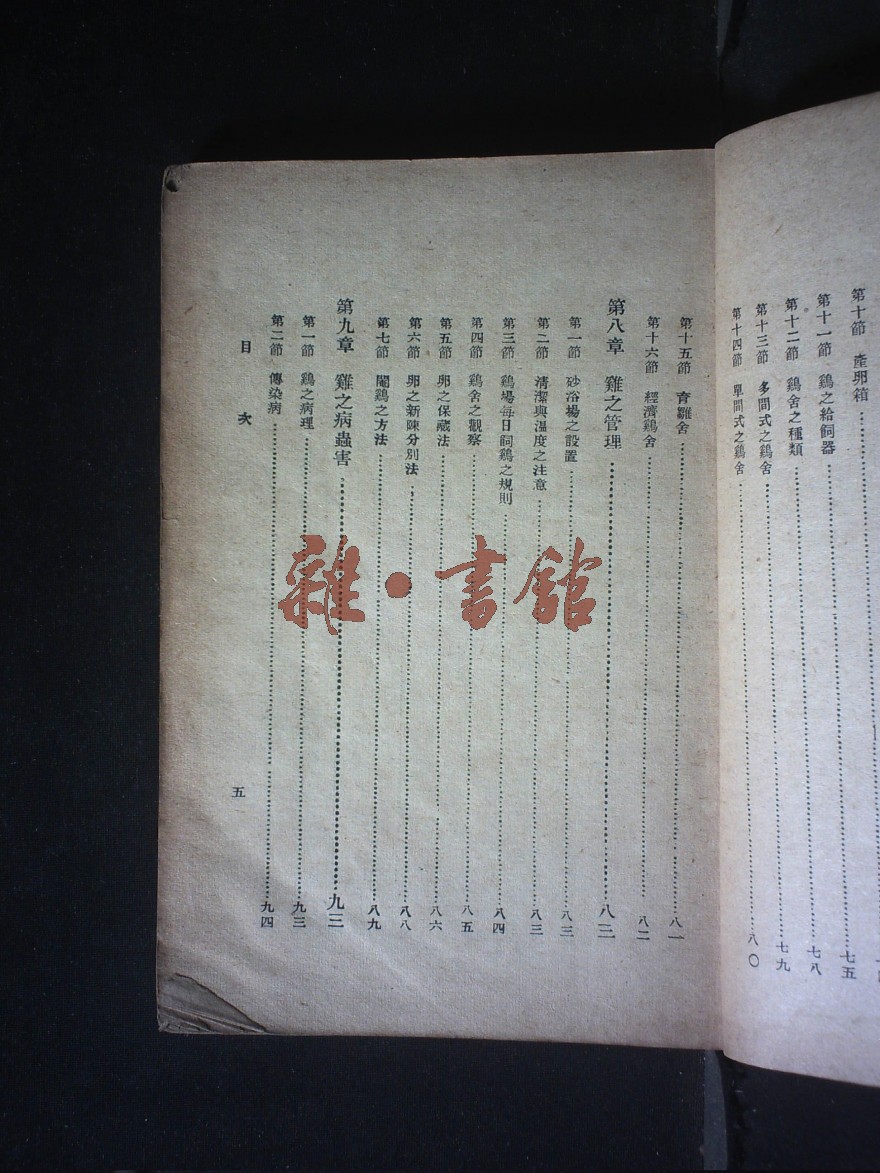 第十節　產卵箱
第十一節　鷄之給飼器……七五
第十二節　鷄舍之種類……七八
第十三節　多間式之鷄舍……七九
第十四節　單間式之鷄舍……八〇
第十五節　育雛舍……八一
第十六節　經濟鷄舍……八二
第八章　雞之管理……八三
第一節　砂浴場之設置……八三
第二節　清潔與溫度之注意……八三
第三節　鷄場每日飼鷄之規則……八四
第四節　鷄舍之觀察……八五
第五節　卵之保藏法……八六
第六節　卵之新陳分別法……八八
第七節　閹鷄之方法……八九
第九章　雞之病蟲害……九三
第一節　鷄之病理……九三
第二節　傳染病……九四
目次
五
雜·書館